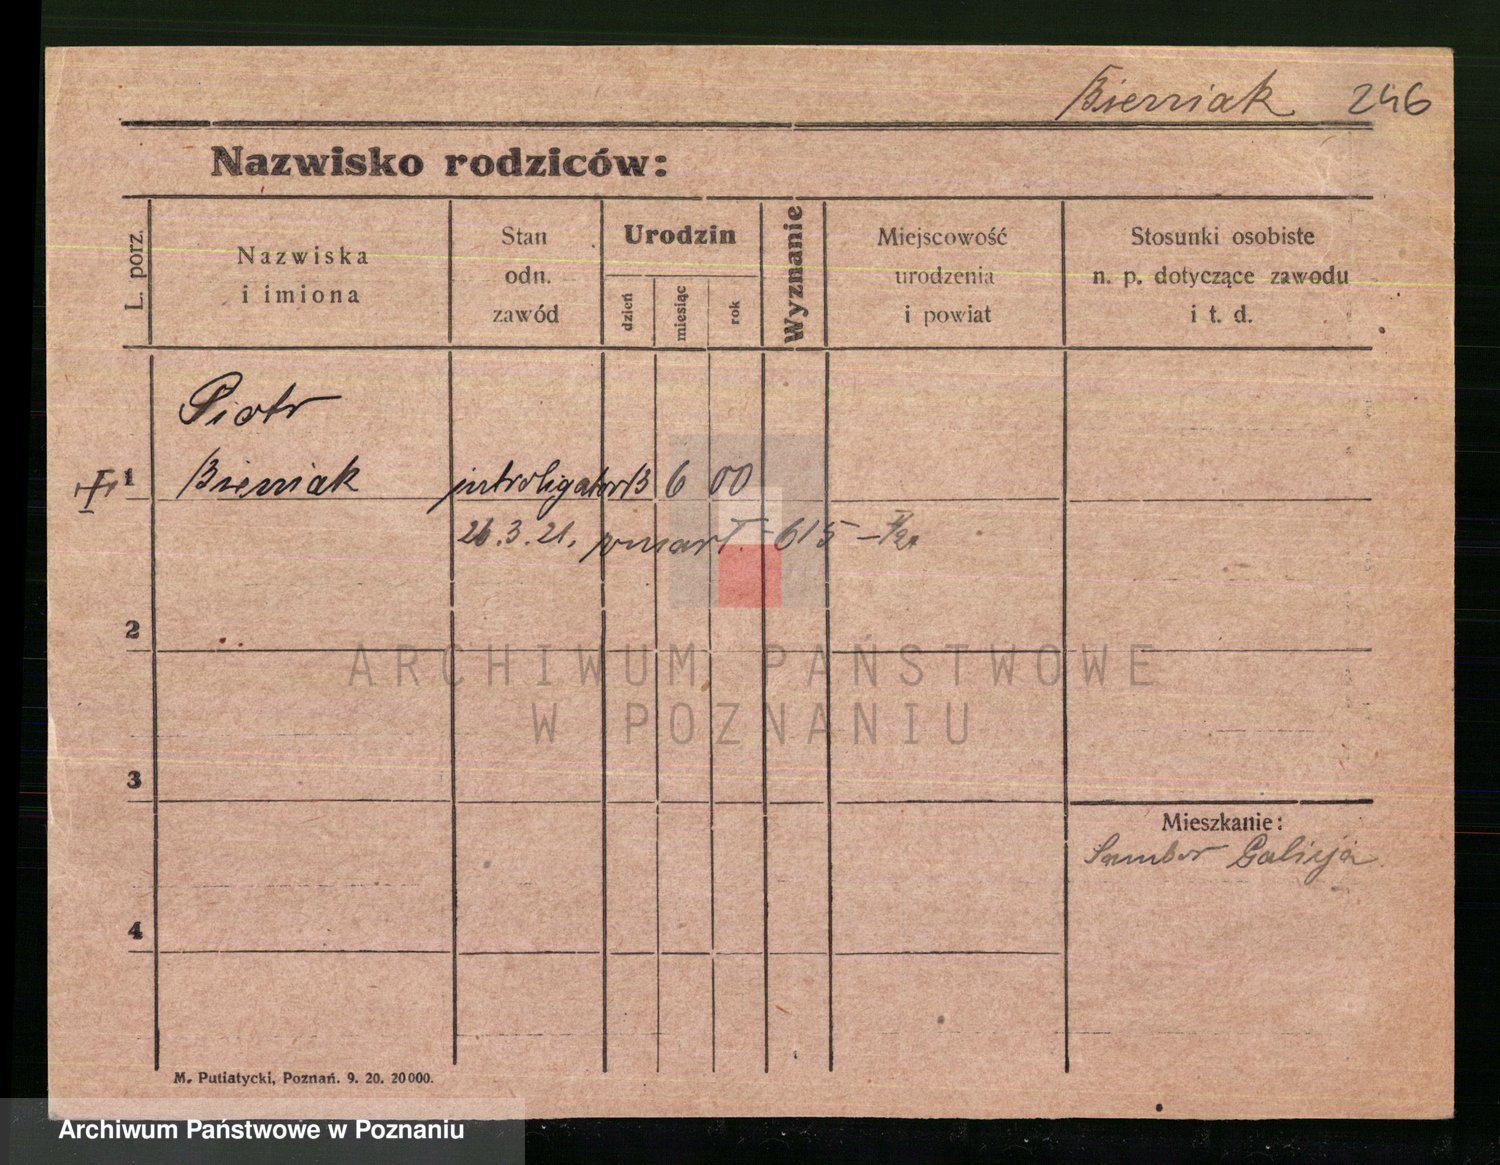 Bierniak 246
Nazwisko rodziców:
L. porz.
Nazwiska
i imiona
Stan
odn.
zawód
Urodzin
dzień
miesiąc
rok
Wyznanie
Miejscowość
urodzenia
i powiat
Stosunki osobiste
n. p. dotyczące zawodu
i t. d.
Piotr
1 Bierniak introligator 13 6 00
26.3.21. zmarł - 615 -
2
ARCHIWUM PAŃSTWOWE
W POZNANIU
3
Mieszkanie:
Sambor Galicja
4
M. Putiatycki, Poznań. 9. 20. 20000.
Archiwum Państwowe w Poznaniu